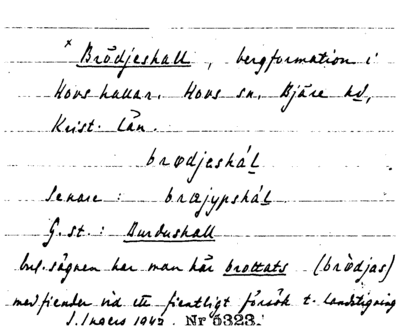 × Brödjeshall, bergformation i
Hovs hallar, Hovs sn, Bjäre hd,
Krist. län.
brødjeshál
Senare: bræjypshál
G. st.: Burdushall
Enl. sägnen har man här brottats (brödjas)
med fiender vid ett fientligt försök t. landstigning
S. Ingers 1942. Nr 5323.